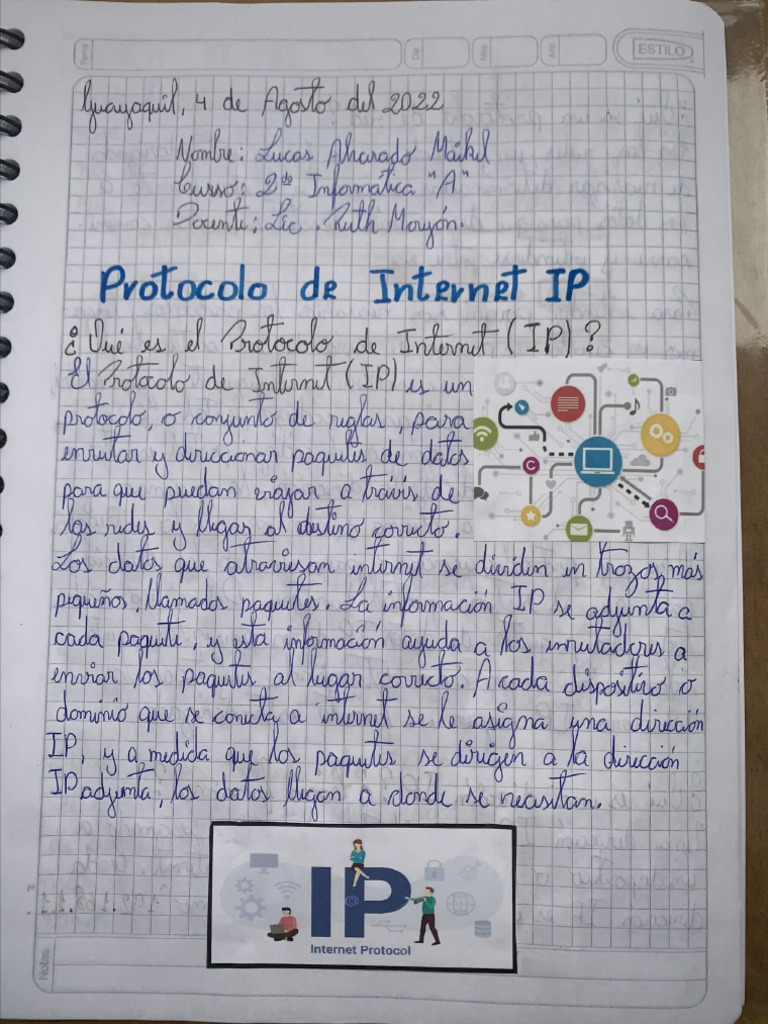 Tema
Día
Mes
Año
ESTILO
Guayaquil, 4 de Agosto del 2022
Nombre: Lucas Alvarado Maikel
Curso: 2do Informática "A"
Docente: Lic. Ruth
Protocolo de Internet IP
¿Qué es el Protocolo de Internet (IP)?
El Protocolo de Internet (IP) es un
protocolo, o conjunto de reglas, para
enrutar y direccionar paquetes de datos
para que puedan viajar a través de
las redes y llegar al destino correcto.
Los datos que atraviesan internet se dividen en trozos más
pequeños, llamados paquetes. La información IP se adjunta a
cada paquete, y esta información ayuda a los enrutadores a
enviar los paquetes al lugar correcto. A cada dispositivo o
dominio que se conecta a internet se le asigna una dirección
IP, y a medida que los paquetes se dirigen a la dirección
IP adjunta, los datos llegan a donde se necesitan.
IP
Internet Protocol
Notas
192.168.1.1